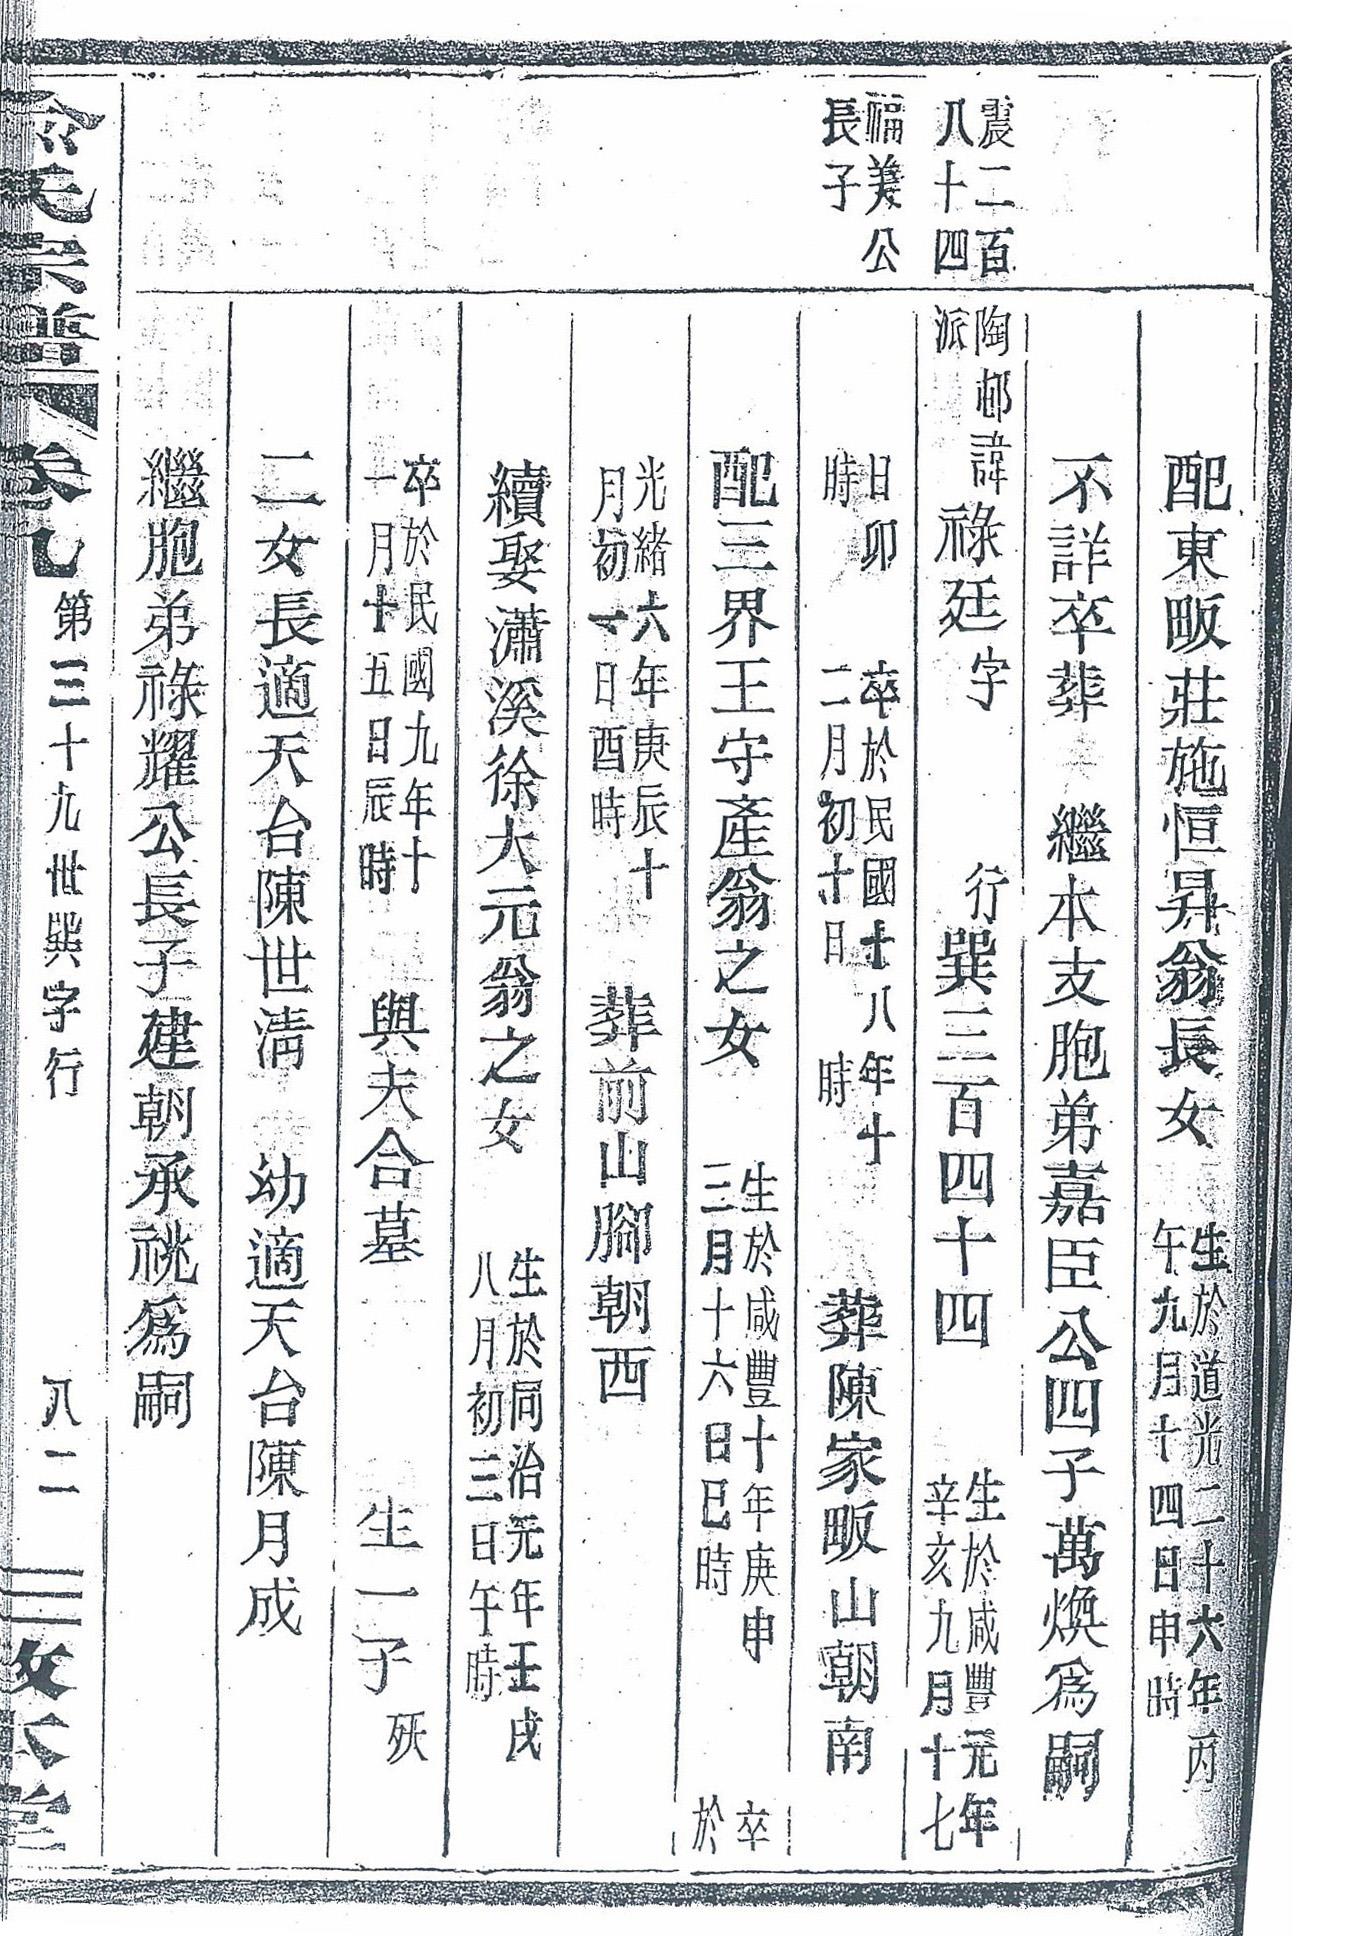 配東畈莊施恒昇翁長女 生於道光二十六年丙午九月十四日申時
不詳卒葬 繼本支胞弟嘉臣公四子萬煥爲嗣
震二百八十四 陶邨派諱祿廷字 行巽三百四十四 生於咸豐元年辛亥九月十七
福美公長子 日卯時 卒於民國十八年十二月初十日 時 葬陳家畈山朝南
配三界王守產翁之女 生於咸豐十年庚申三月十六日巳時 卒於
光緒六年庚辰十月初一日酉時 葬前山腳朝西
續娶瀟溪徐大元翁之女 生於同治元年壬戌八月初三日午時
卒於民國九年十一月十五日辰時 與夫合墓 生一子 殀
二女長適天台陳世清 幼適天台陳月成
繼胞弟祿耀公長子建朝承祧爲嗣
俞氏宗譜 卷九 第三十九世巽字行 八二 敦本堂